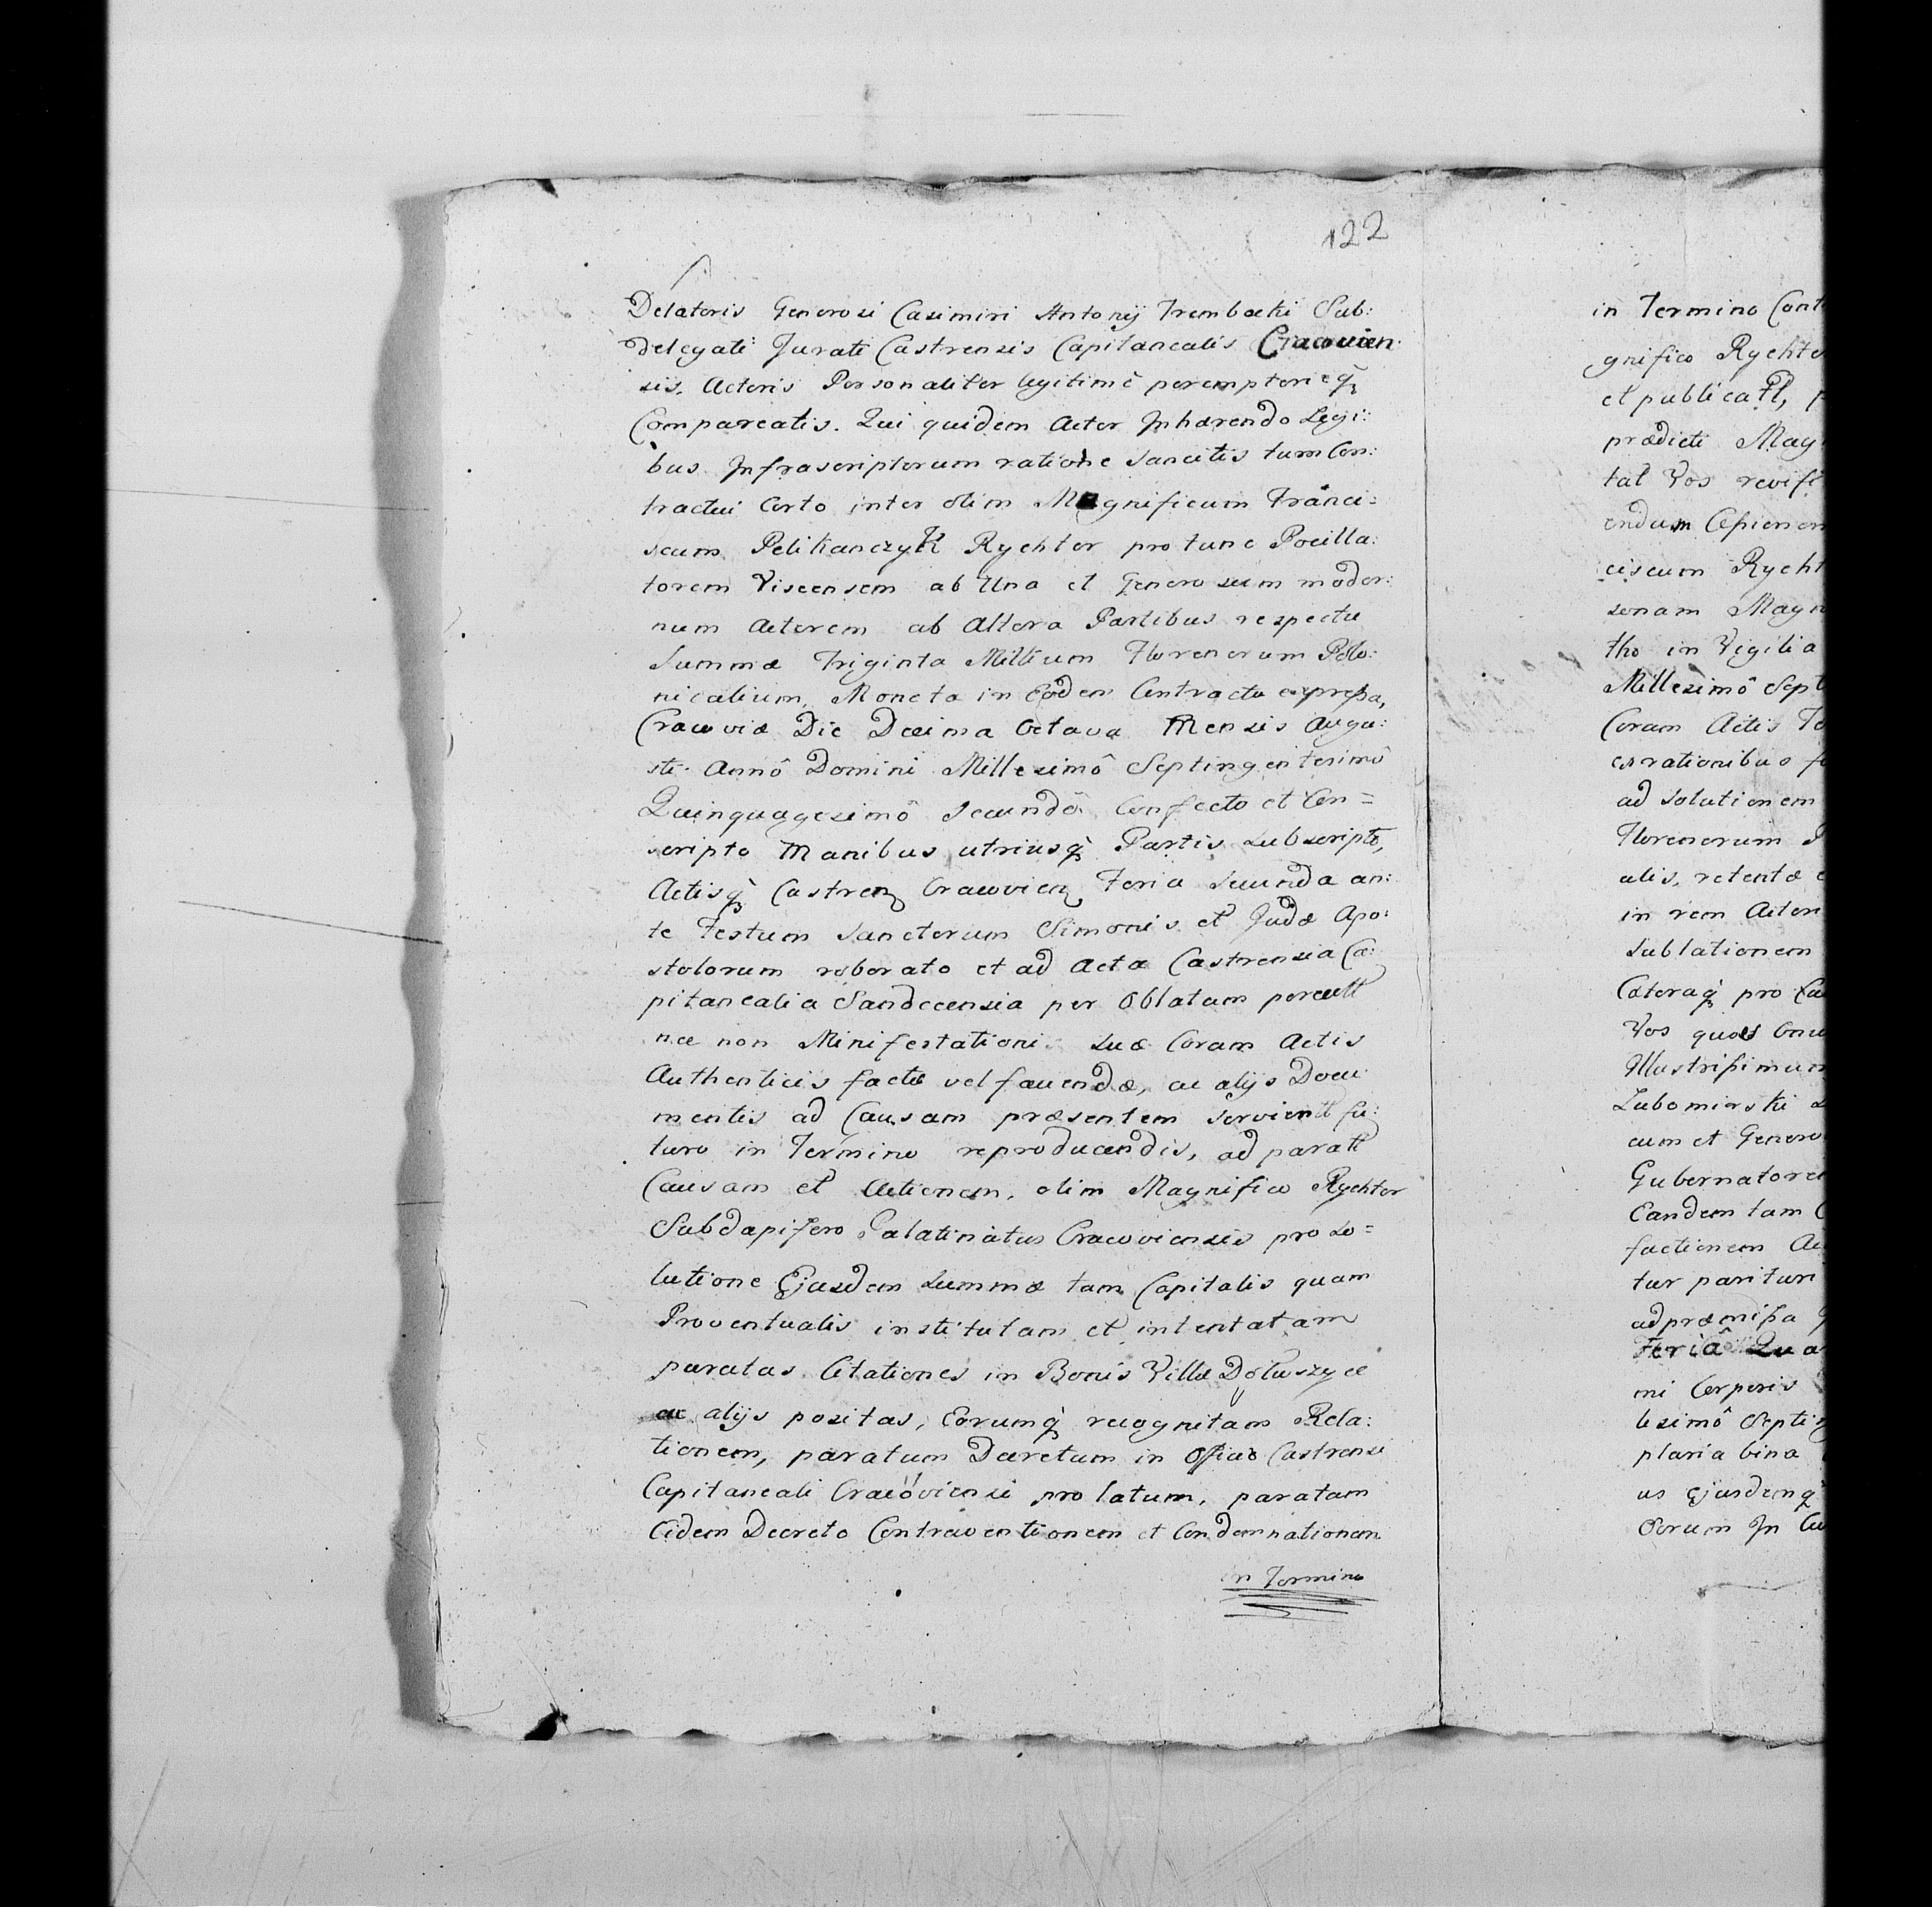 122
Delatoris Generosi Casimiri Antonij Trembecki Sub:
delegati Jurati Castrensis Capitanealis Cracovien:
sis, Actoris Personaliter legitimè peremptorieq̀
Compareatis. Qui quidem Actor Inhærendo Legi:
bus Infrascriptorum ratione sancitis tum Con:
tractui Certo inter olim Magnificum Franci:
scum PelikanczyK Rychter pro tunc Pocilla:
torem Viscensem ab Una et Generosum moder:
num Actorem ab Altera Partibus respectu
Summæ Triginta Millium Florenorum Polo:
nicalium, Moneta in Eodem Contractu expressa,
Cracoviæ Die Decima Octava Mensis Augu:
sti Annô Domini Millesimô Septingentesimô
Quinquagesimô Secundô Confecto et Con=
scripto Manibus utriusq̀ Partis subscripto,
Actisq̀ Castren Cracovien Feria Secunda an:
te Festum Sanctorum Simonis et Judæ Apo:
stolorum roborato et ad Acta Castrensia Ca:
pitanealia Sandecensia per Oblatam porrectt
nec non Minifestationi suæ Coram Actis
Authenticis factæ vel faciendæ, ac alijs Docu
mentis ad Causam præsentem servientt fu:
turo in Termino reproducendis, ad paratt
Causam et Actionem, olim Magnifico Rychter
Subdapifero Palatinatus Cracoviensis pro so=
lutione Ejusdem summæ tam Capitalis quam
Proventualis institutam et intentatam
paratas Citationes in Bonis Villæ Dołuszyce
ac alijs positas, Eorumq̀ recognitam Rela:
tionem, paratum Decretum in Officio Castrensi
Capitaneali Cracoviensi prolatum, paratam
Eidem Decreto Contraventionem et Condemnationem
in Termino
in Termino Cont
gnifico Rychte
et publicatt,
prædicti Mag
tat Vos revisi
endum
ciscum Rycht
sonam Magn
tho in Vigilia
Millesimô Sept
Coram Actis
ex rationibus
ad solutionem
Florenorum P
alis, retentæ
in rem Actori
Sublationem
Cæteraq̀ pro Ca
Vos quos
Illustrissimum
Lubomirski
cum et Genero
Gubernatore
Eandem tam
factionem
tur parituri
ad præmissa
Feriâ Qua
mi Corporis
lesimô Septin
plaria bina
us Ejusdemq̀
In